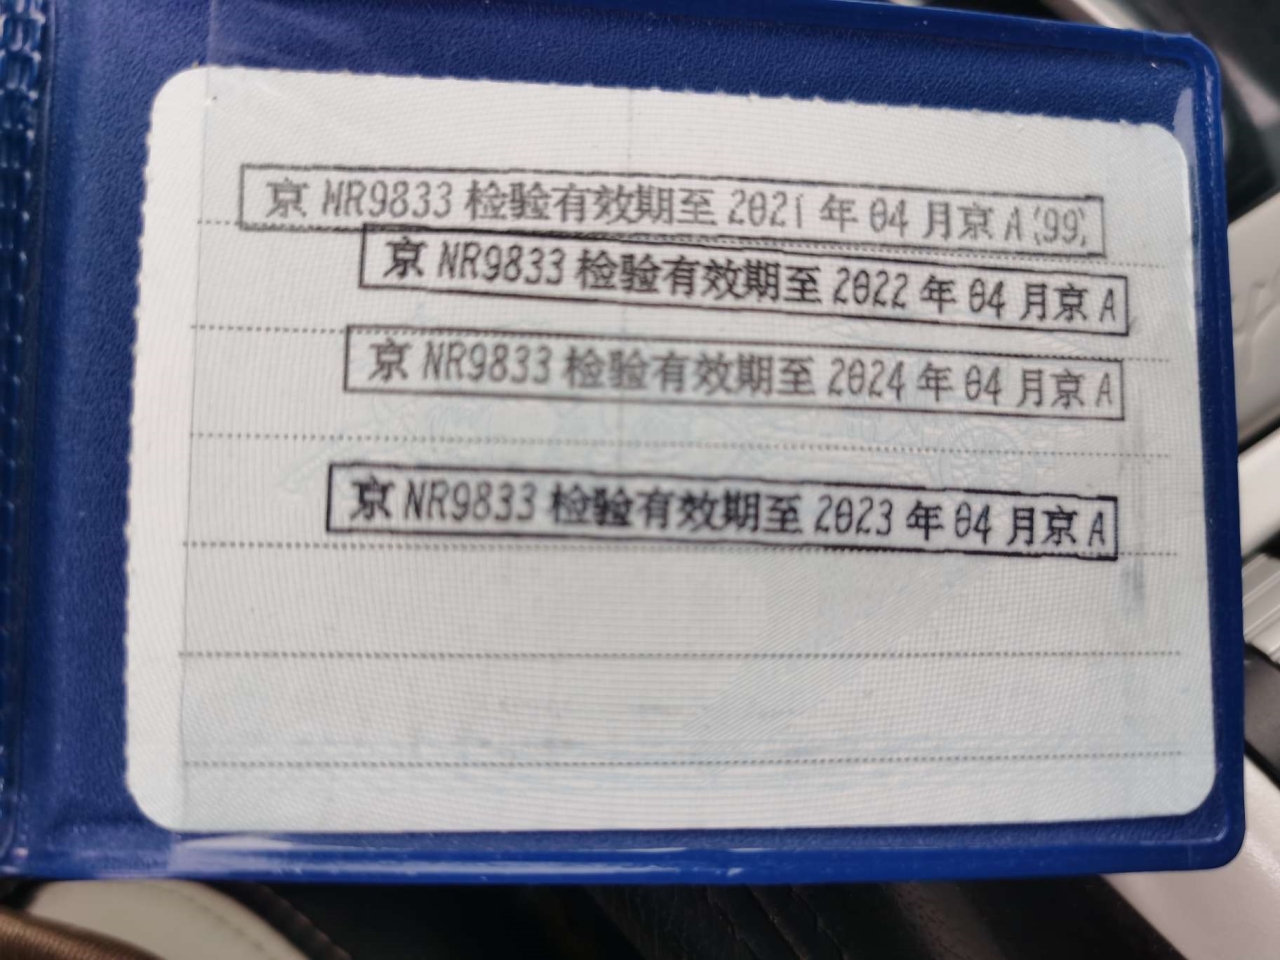 京 NR9833 检验有效期至 2021 年 04 月京 A(99)
京 NR9833 检验有效期至 2022 年 04 月京 A
京 NR9833 检验有效期至 2024 年 04 月京 A
京 NR9833 检验有效期至 2023 年 04 月京 A